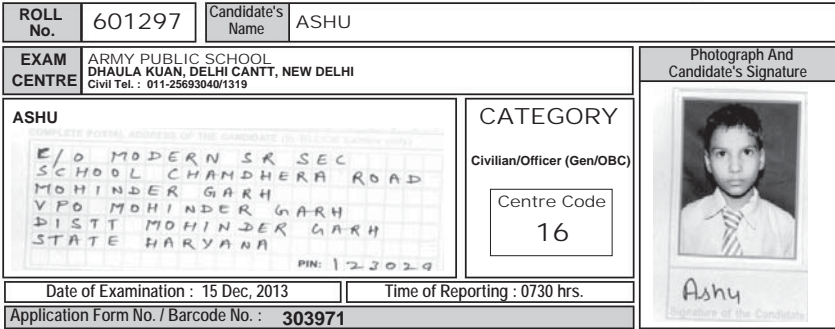 ROLL No. 601297 Candidate's Name ASHU
EXAM CENTRE
ARMY PUBLIC SCHOOL
DHAULA KUAN, DELHI CANTT, NEW DELHI
Civil Tel. : 011-25693040/1319
Photograph And
Candidate's Signature
ASHU
COMPLETE POSTAL ADDRESS OF THE CANDIDATE
C/O MODERN SR SEC
SCHOOL CHAMDHERA ROAD
MOHINDER GARH
VPO MOHINDER GARH
DISTT MOHINDER GARH
STATE HARYANA
PIN: 123029
CATEGORY
Civilian/Officer (Gen/OBC)
Centre Code
16
Ashu
Signature of the Candidate
Date of Examination : 15 Dec, 2013
Time of Reporting : 0730 hrs.
Application Form No. / Barcode No. : 303971